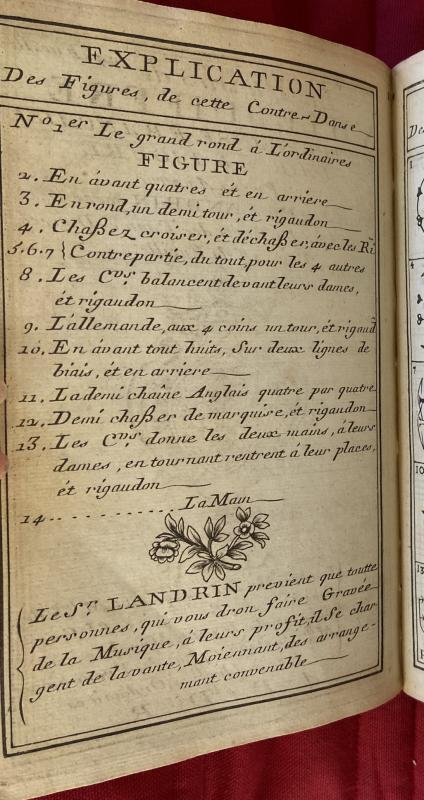 EXPLICATION
Des Figures, de cette Contre-Danse
No. 1er Le grand rond á L'ordinaires
FIGURE
2. En ávant quatres ét en arriere
3. En rond, un demi tour, ét rigaudon
4. Chaßez croiser, ét déchaßer, ávec les Ri
5.6.7 } Contrepartie, du tout, pour les 4 autres
8. Les Cvs balancent devant leurs dames,
ét rigaudon
9. L'allemande, aux 4 coins un tour, ét rigaud
10. En ávant tout huits, Sur deux lignes de
biais, ét en arriere
11. La demi chaîne Anglais quatre par quatre
12. Demi chaßer de marquise, ét rigaudon
13. Les Cvs donne les deux mains, á leurs
dames, en tournant rentrent á leur places,
ét rigaudon
14 .......... La Main
Le Sr. LANDRIN previent que toutte
personnes, qui vous dron faire Gravée
de la Musique, á leurs profit, il Se char
gent de la vante, Moiennant, des arrange-
mant convenable
Des
1
4
7
10
13